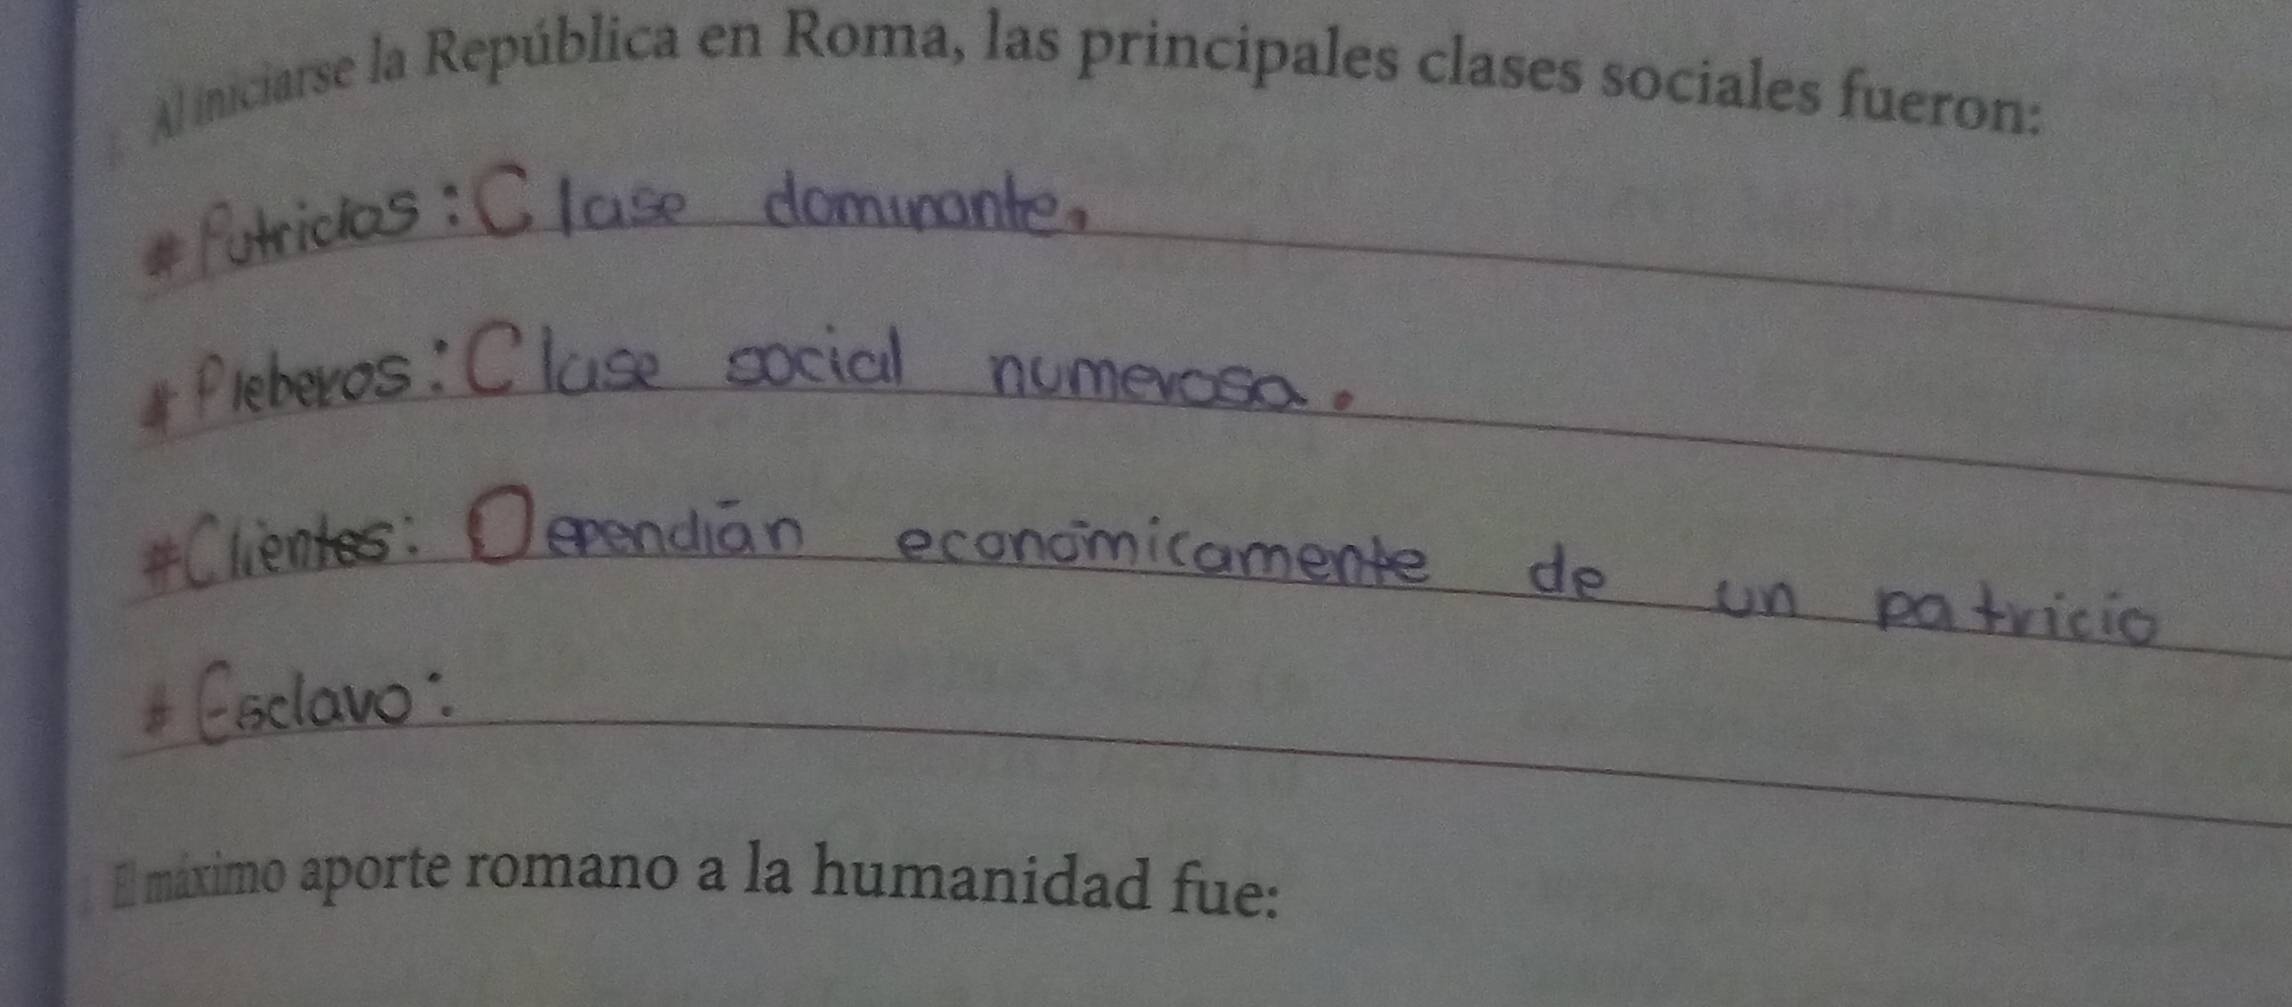 Al iniciarse la República en Roma, las principales clases sociales fueron:
# Patricios: Clase dominante.
# Plebeyos: Clase social numerosa.
# Clientes: Dependían económicamente de un patricio
# Esclavo:
El máximo aporte romano a la humanidad fue: